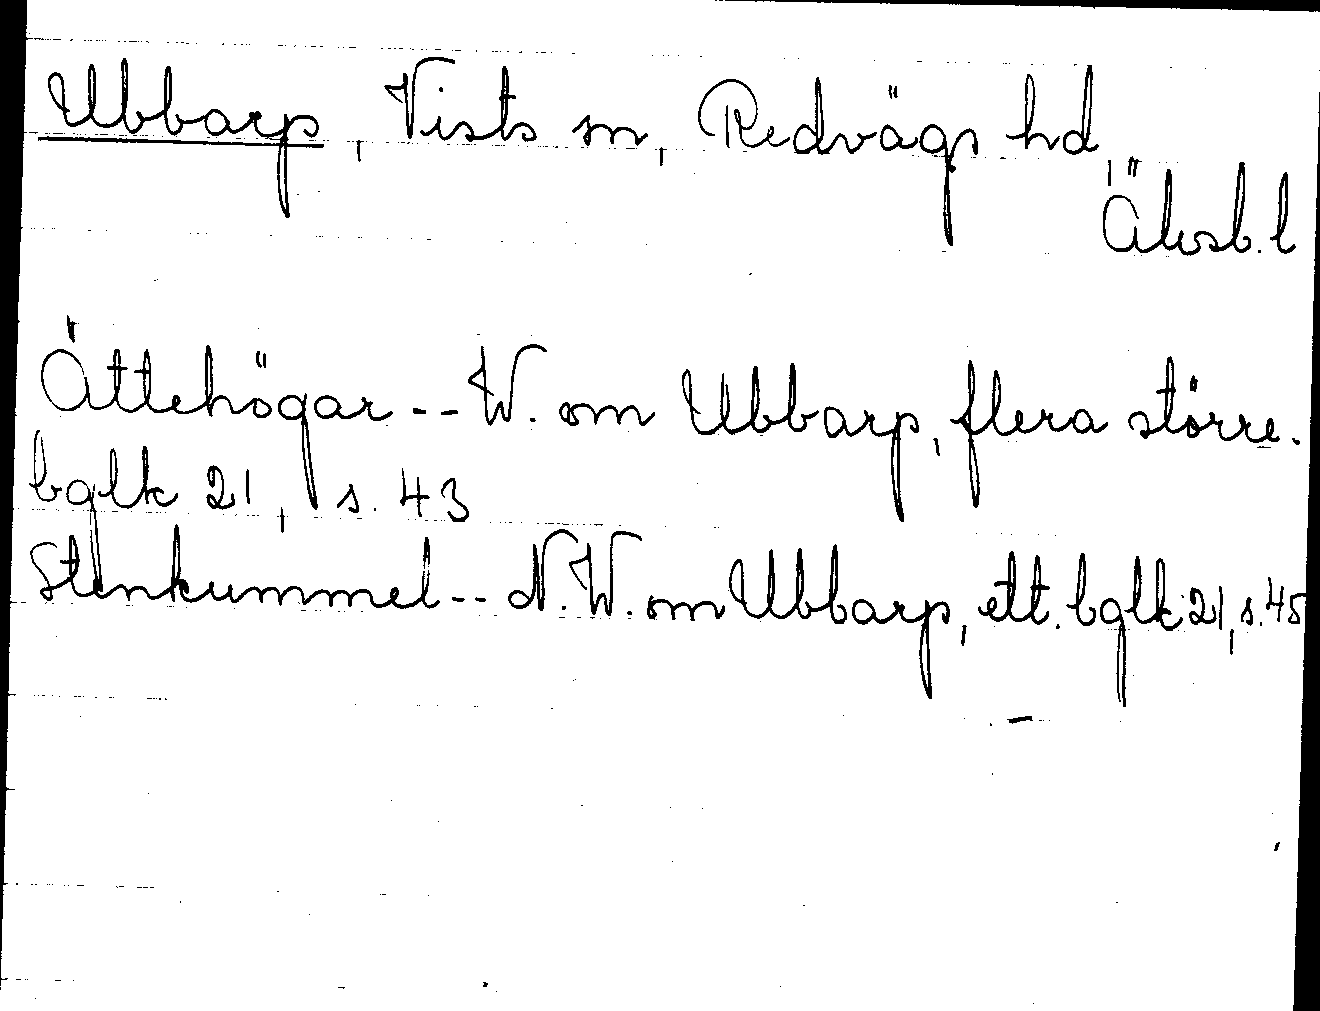 Ubbarp, Vists sn, Redvägs hd,
Älvsb. l
Ättehögar -- W. om Ubbarp, flera större.
bglk 21, s. 43
Stenkummel -- N.W. om Ubbarp, ett. bglk 21, s. 45